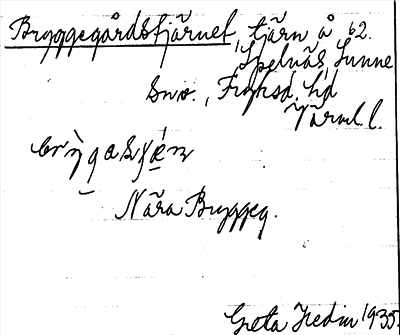 Bryggegårdstjärnet, tjärn å 62.
Spelnäs, Sunne
sn o., Fryksd. hd
Värml. l.
Nära Bryggeg.
Greta Hedin 1935.